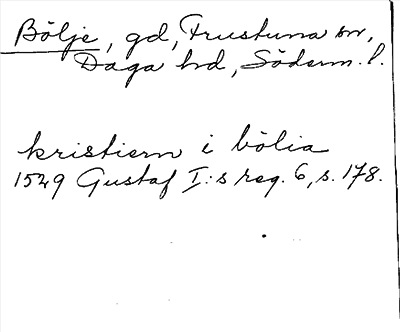 Bölje, gd, Frustuna sn,
Daga hd, Söderm. l.
kristiern i bölia
1529 Gustaf I:s reg. 6, s. 178.